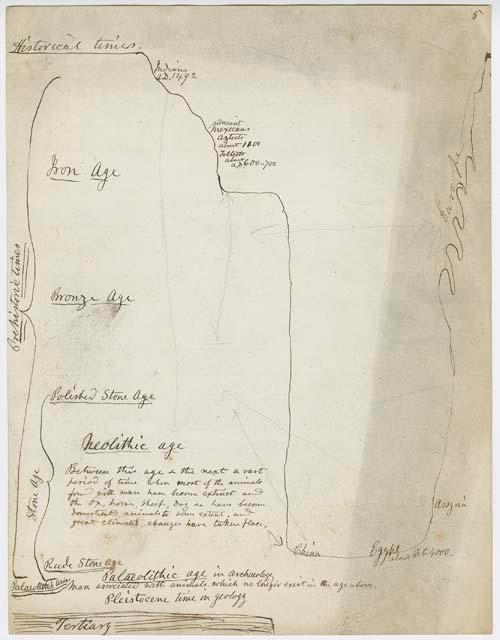 5
Historical times.
Indians
A.D. 1492
Ancient
Mexicans
Aztects
about 1100
Toltects
about
A.D. 600-700
Iron Age
Europe
Prehistoric times
Bronze Age
Polished Stone Age
Neolithic age
Between this age & the next a vast
period of time when most of the animals
found with man have become extinct and
the ox, horse, sheep, dog &c have become
domestical animals to some extent, and
great climatic changes have taken place.
Stone Age
Assyria
China
Egypt
about B.C. 4000.
Rude Stone age
Palaeolithic age in archaeology
Palaeolithic
man associated with animals which no longer exist in the age above.
Pleistocene time in geology
Tertiary